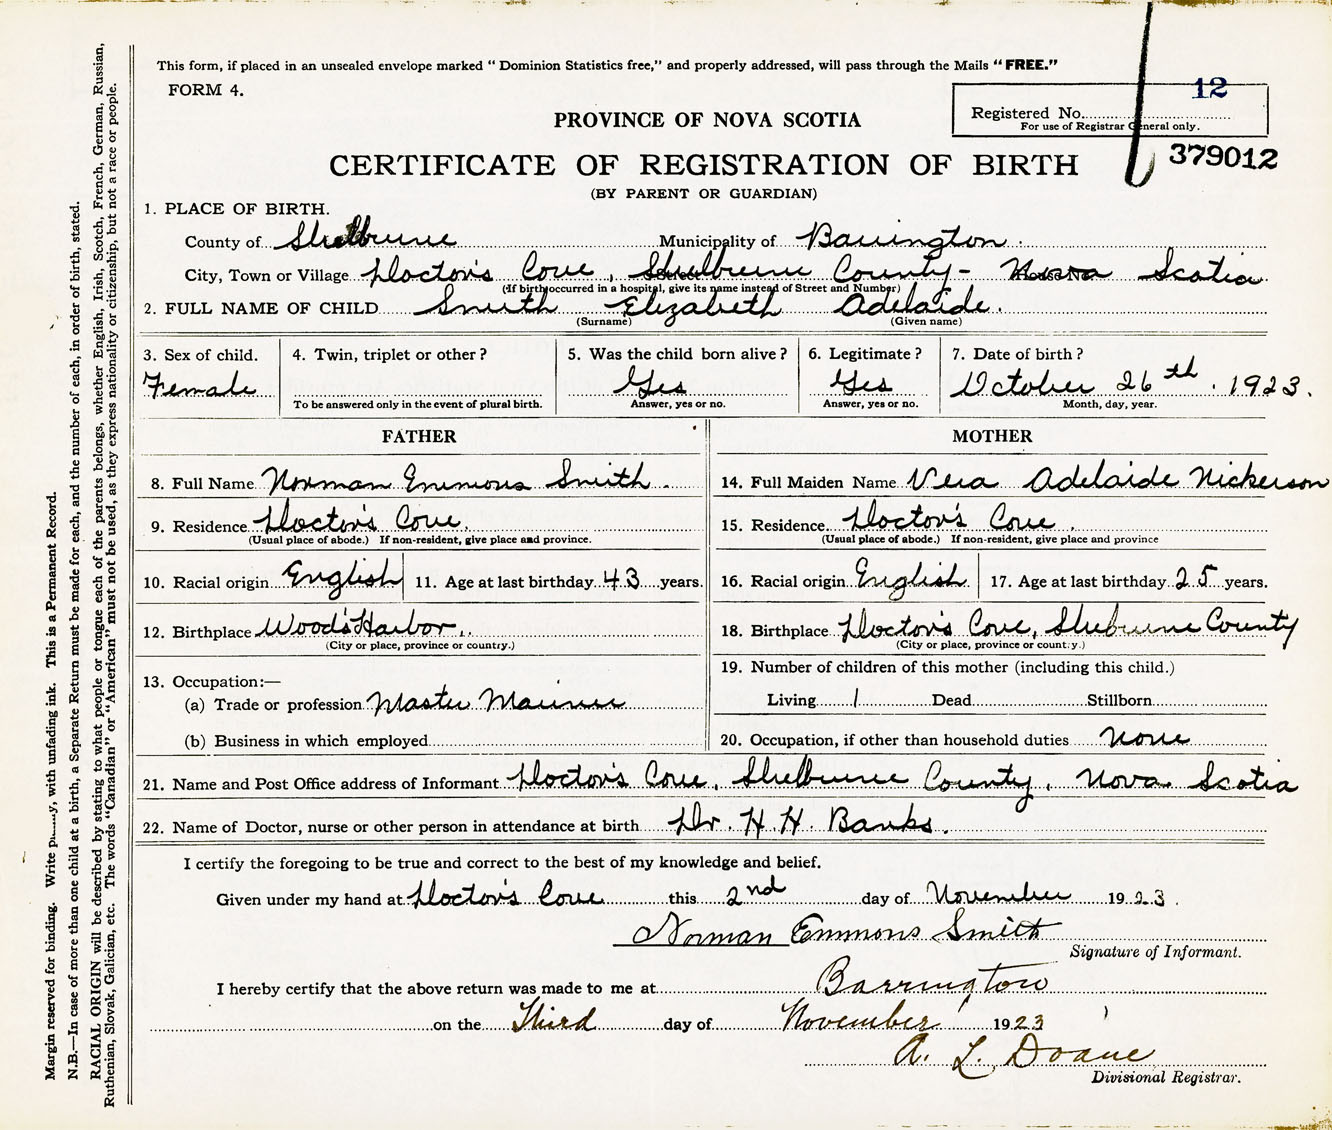 This form, if placed in an unsealed envelope marked "Dominion Statistics free," and properly addressed, will pass through the Mails "FREE."
FORM 4.
12
Registered No.
For use of Registrar General only.
PROVINCE OF NOVA SCOTIA
379012
CERTIFICATE OF REGISTRATION OF BIRTH
(BY PARENT OR GUARDIAN)
1. PLACE OF BIRTH.
County of Shelburne Municipality of Barrington.
City, Town or Village Doctor's Cove, Shelburne County - Nova Scotia
(If birth occurred in a hospital, give its name instead of Street and Number)
2. FULL NAME OF CHILD Smith Elizabeth Adelaide.
(Surname) (Given name)
3. Sex of child. 4. Twin, triplet or other? 5. Was the child born alive? 6. Legitimate? 7. Date of birth?
Female Yes Yes October 26th. 1923.
To be answered only in the event of plural birth. Answer, yes or no. Answer, yes or no. Month, day, year.
FATHER MOTHER
8. Full Name Norman Emmons Smith. 14. Full Maiden Name Vera Adelaide Nickerson
9. Residence Doctor's Cove. 15. Residence. Doctor's Cove.
(Usual place of abode.) If non-resident, give place and province. (Usual place of abode.) If non-resident, give place and province
10. Racial origin English 11. Age at last birthday 43 years. 16. Racial origin English 17. Age at last birthday 25 years.
12. Birthplace Wood's Harbor. 18. Birthplace Doctor's Cove, Shelburne County
(City or place, province or country.) (City or place, province or country.)
19. Number of children of this mother (including this child.)
13. Occupation:—
(a) Trade or profession Master Mariner Living 1 Dead Stillborn
(b) Business in which employed 20. Occupation, if other than household duties None
21. Name and Post Office address of Informant Doctor's Cove, Shelburne County, Nova Scotia
22. Name of Doctor, nurse or other person in attendance at birth Dr. H. H. Banks.
I certify the foregoing to be true and correct to the best of my knowledge and belief.
Given under my hand at Doctor's Cove this 2nd day of November 1923.
Norman Emmons Smith
Signature of Informant.
I hereby certify that the above return was made to me at Barrington
on the Third day of November 1923
A. L. Doane
Divisional Registrar.
Margin reserved for binding. Write with unfading ink. This is a Permanent Record.
N.B.—In case of more than one child at a birth, a Separate Return must be made for each, and the number of each, in order of birth, stated.
RACIAL ORIGIN will be described by stating to what people or tongue each of the parents belongs, whether English, Irish, Scotch, French, German, Russian,
Ruthenian, Slovak, Galician, etc. The words "Canadian" or "American" must not be used, as they express nationality or citizenship, but not a race or people.